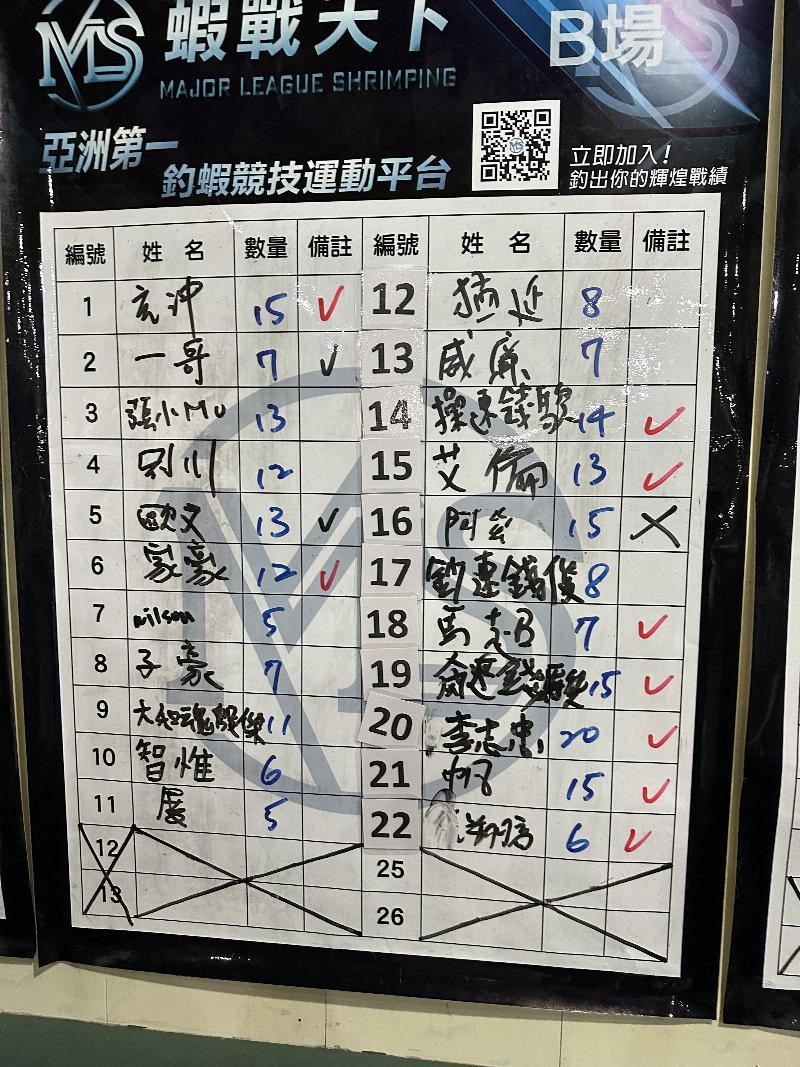 MS 蝦戰天下 B場
MAJOR LEAGUE SHRIMPING
亞洲第一
釣蝦競技運動平台
立即加入！
釣出你的輝煌戰績
編號 姓名 數量 備註 編號 姓名 數量 備註
1 15 ✓ 12 8
2 一哥 7 ✓ 13 威廉 7
3 張小MU 13 14 操連錢 14 ✓
4 12 15 艾倫 13 ✓
5 歐文 13 ✓ 16 阿紫 15 X
6 家豪 12 ✓ 17 連錢 8
7 wilson 5 18 馬克B 7 ✓
8 子豪 7 19 連錢 15 ✓
9 大和魂 11 20 李志忠 20 ✓
10 智惟 6 21 15 ✓
11 展 5 22 6 ✓
12 25
13 26